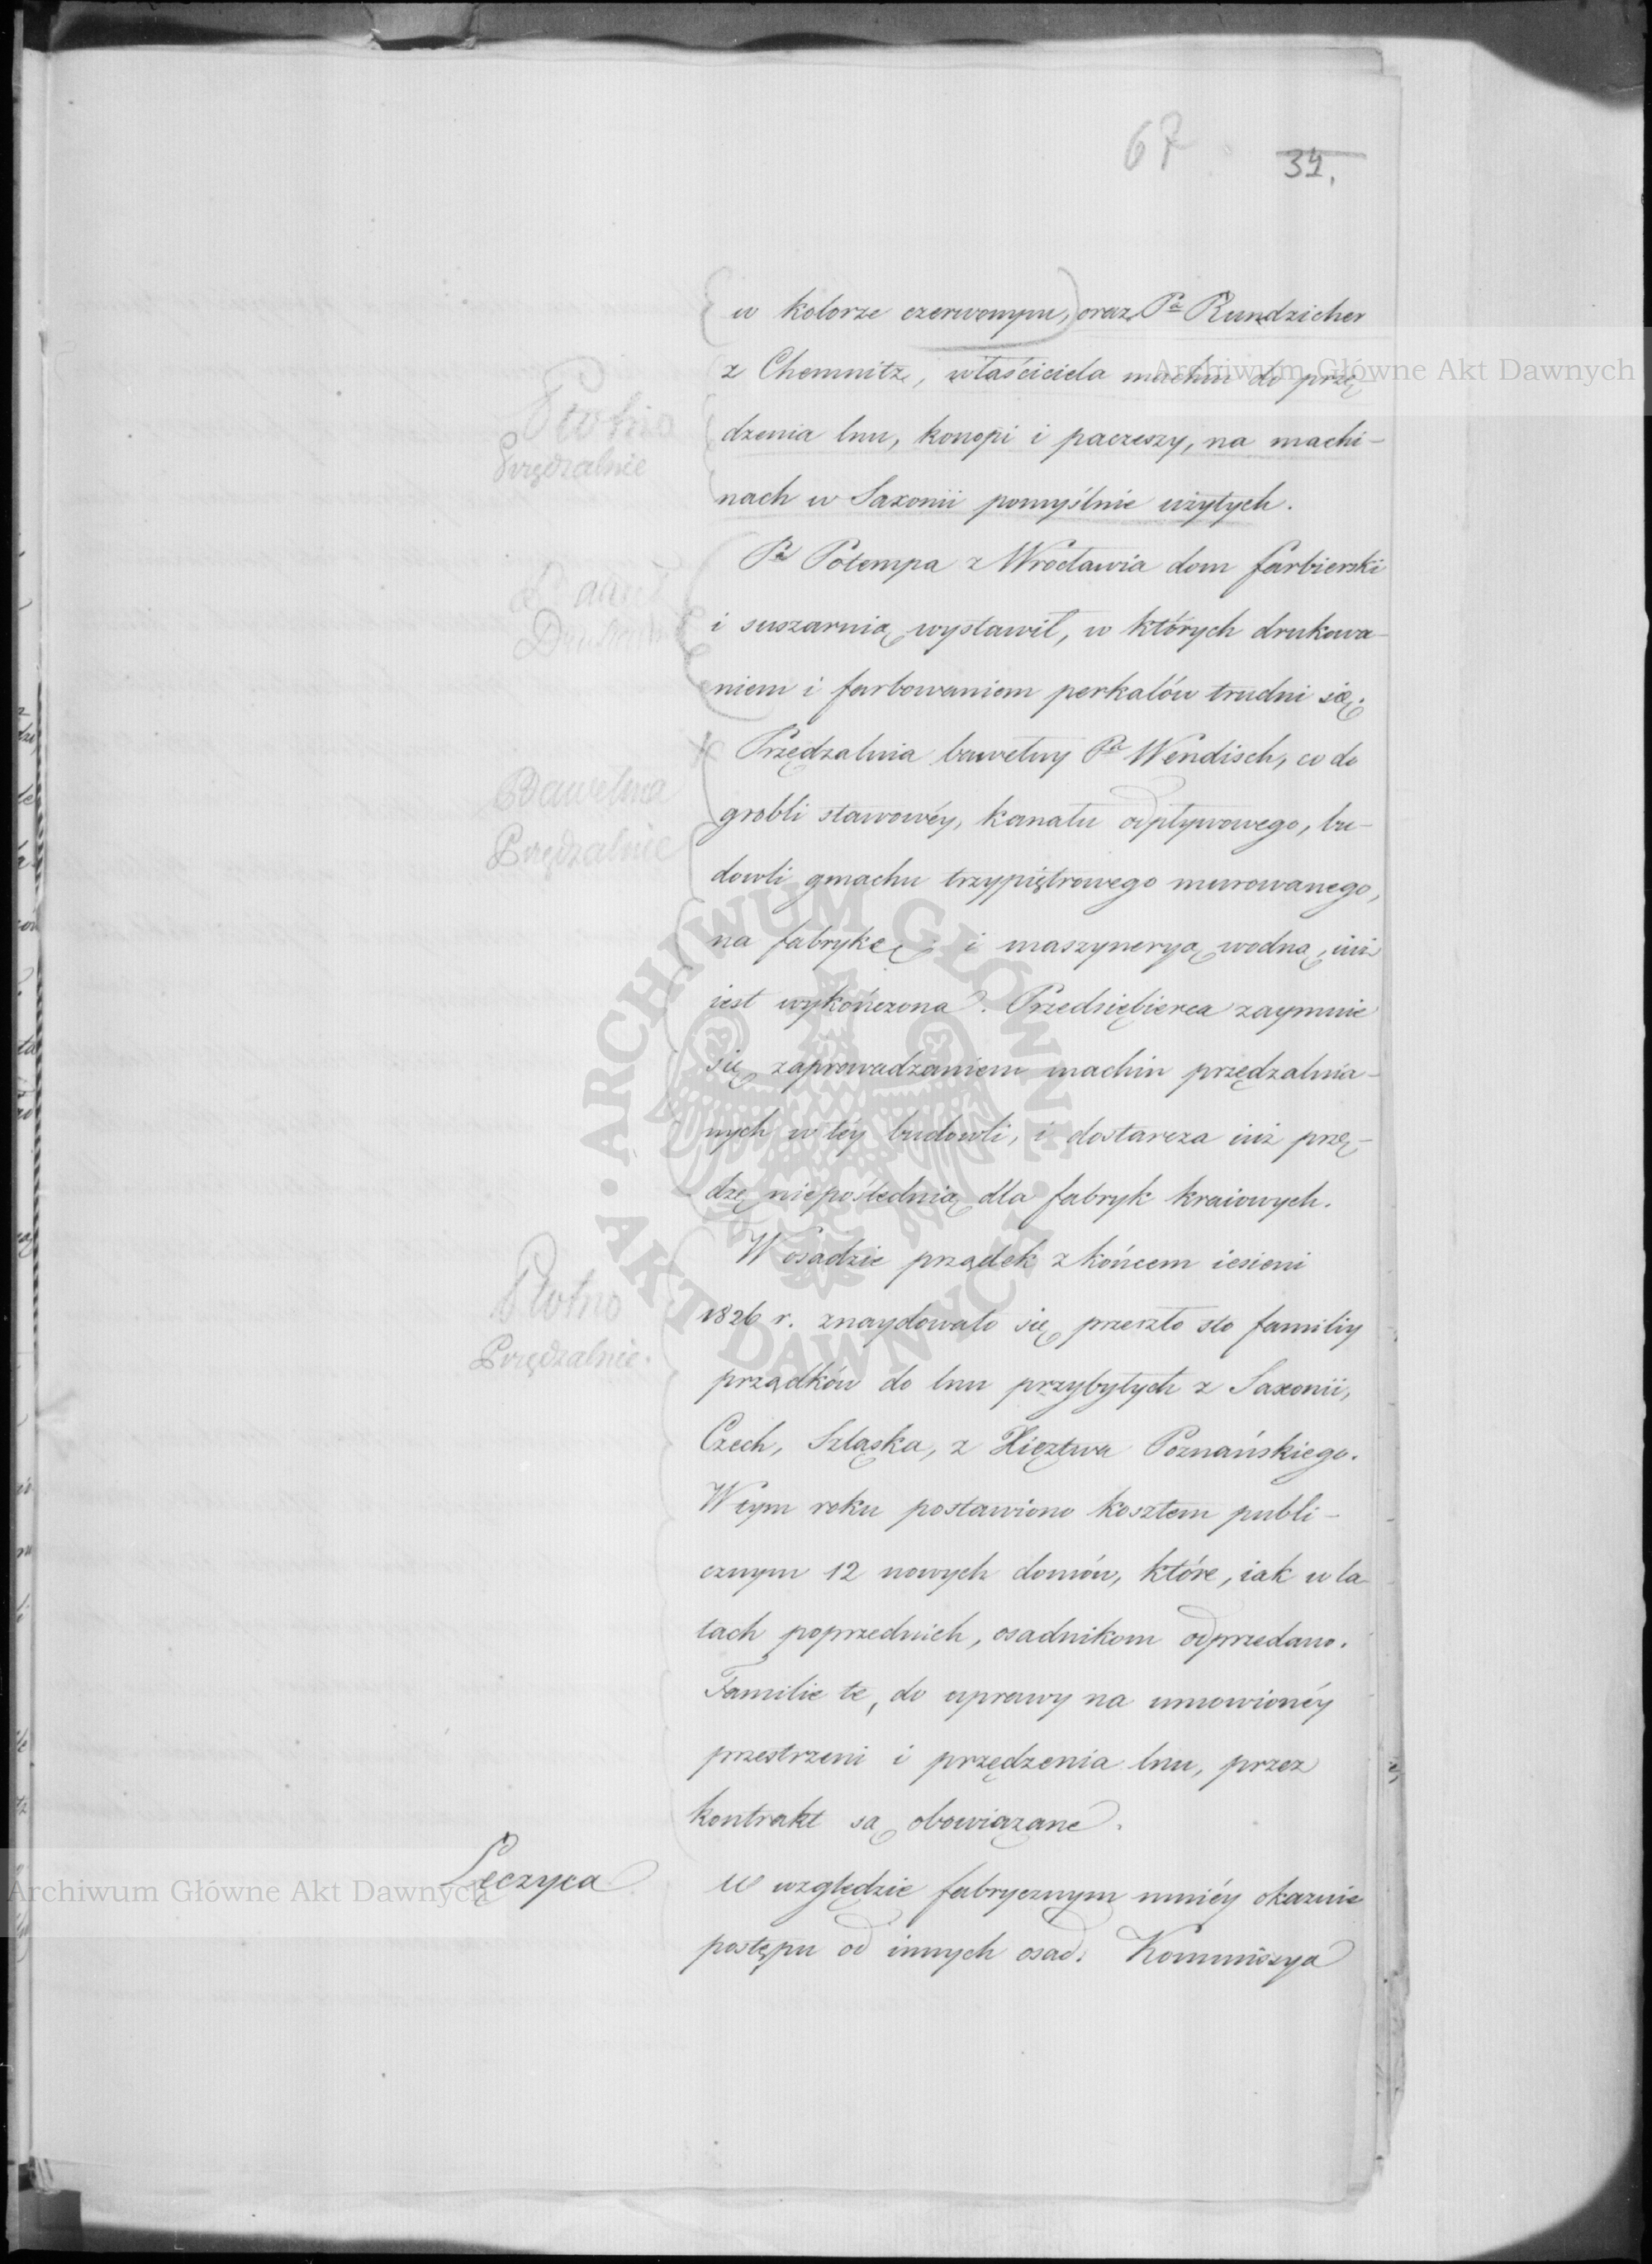 67
34.
w kolorze czerwonym, oraz Pa Rundzicher
z Chemnitz, właściciela machin do przę-
dzenia lnu, konopi i paczeszy, na machi-
nach w Saxonii pomyślnie użytych.
Płótno
Przędzalnie
Pa Potempa z Wrocławia dom farbierski
i suszarnią wystawił, w których drukowa-
niem i farbowaniem perkalów trudni się.
Przędzalnia bawełny Pa Wendisch, co do
grobli stawowéy, kanału odpływowego, bu-
dowli gmachu trzypiętrowego murowanego,
na fabrykę, i maszyneryą wodną, iuż
iest wykończona. Przedsiębierca zaymuie
się zaprowadzaniem machin przędzalnia-
nych w téy budowli, i dostarcza iuż przę-
dzę niepoślednią dla fabryk kraiowych.
Bawełna
Przędzalnie
W osadzie prządek z końcem iesieni
1826 r. znaydowało się przeszło sto familiy
prządków do lnu przybyłych z Saxonii,
Czech, Szląska, z Xięztwa Poznańskiego.
W tym roku postawiono kosztem publi-
cznym 12 nowych domów, które, iak w la-
tach poprzednich, osadnikom odprzedano.
Familie te, do uprawy na umowionéy
przestrzeni i przędzenia lnu, przez
kontrakt są obowiązane.
Płótno
Przędzalnie.
Łęczyca
W względzie fabrycznym mniéy okazuie
postępu od innych osad. Kommissya
Archiwum Główne Akt Dawnych
ARCHIWUM GŁÓWNE AKT DAWNYCH
Archiwum Główne Akt Dawnych